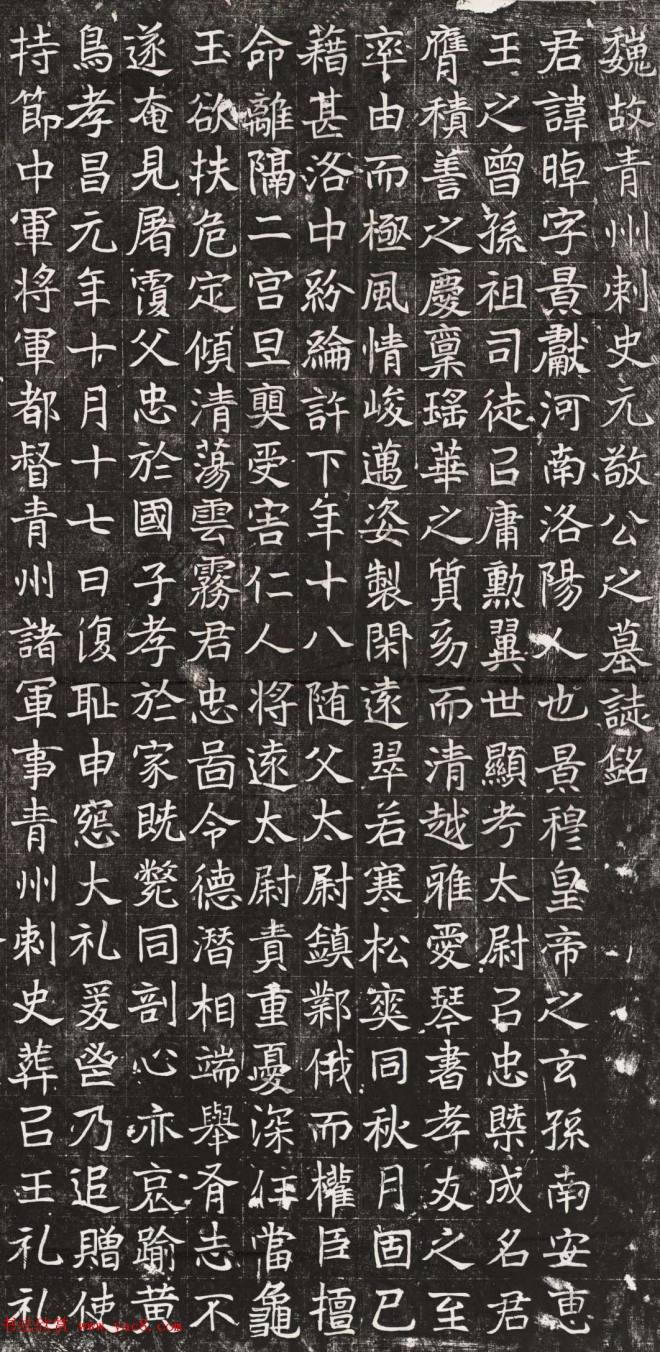 魏故青州刺史元敬公之墓誌銘
君諱晫字景獻河南洛陽人也景穆皇帝之玄孫南安惠
王之曾孫祖司徒㠯庸勳翼世顯考太尉㠯忠槩成名君
膺積善之慶稟瑤華之質㓜而清越雅愛琴書孝友之至
率由而極風情峻邁姿製閑遠翠若寒松爽同秋月固已
藉甚洛中紛綸許下年十八随父太尉鎮鄴俄而權臣擅
命離隔二宫旦奭受害仁人將遠太尉責重憂深任當龜
玉欲扶危定傾清蕩雲霧君忠啚令德潛相端舉胥志不
遂奄見屠覆父忠於國子孝於家旣斃同剖心亦哀踰黄
鳥孝昌元年十月十七日復耻申寃大礼爰啓乃追贈使
持節中軍將軍都督青州諸軍事青州刺史葬㠯王礼礼
书法欣赏 www.yac8.com